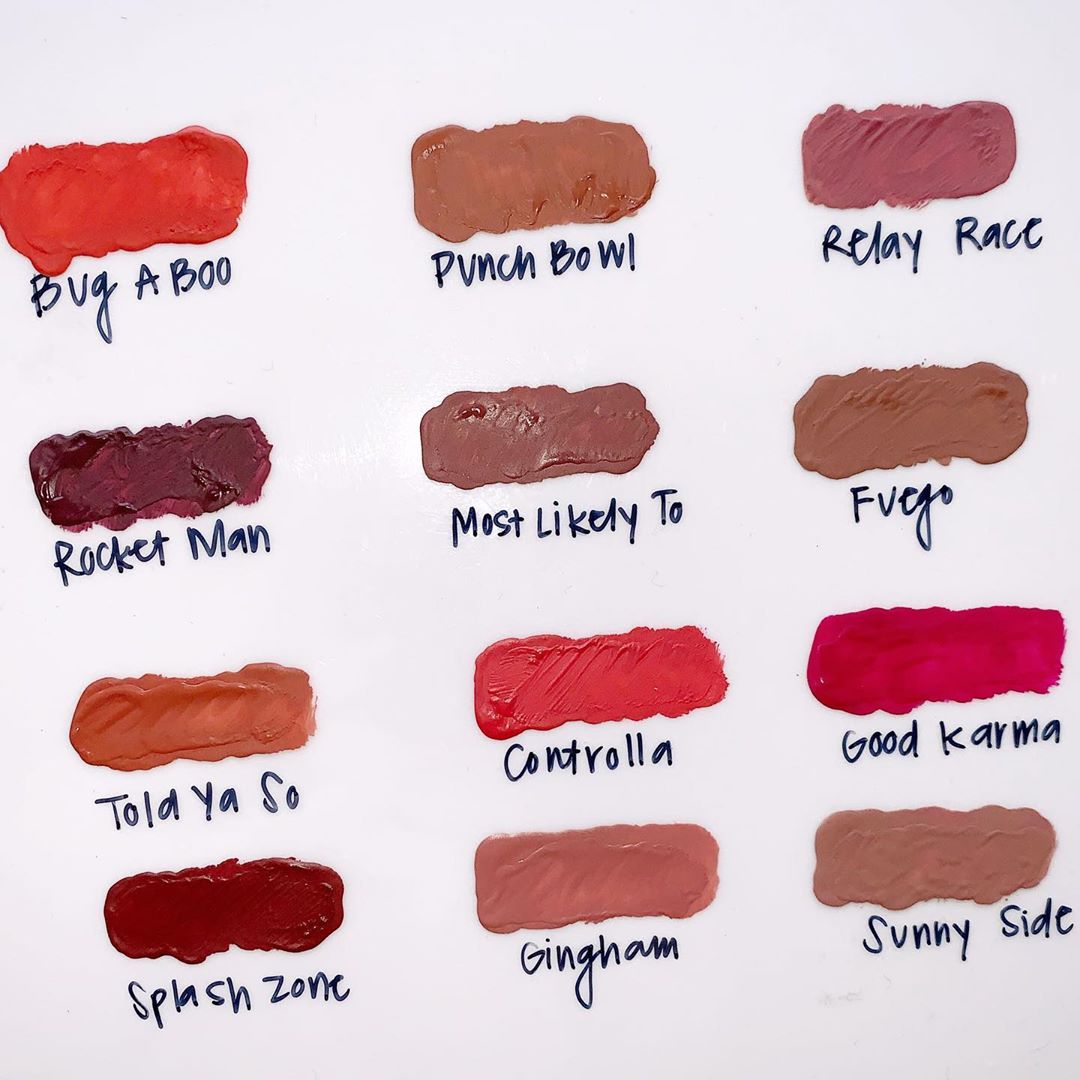 Bug A Boo
Punch Bowl
Relay Race
Rocket Man
Most Likely To
Fuego
Told Ya So
Controlla
Good Karma
Splash Zone
Gingham
Sunny Side